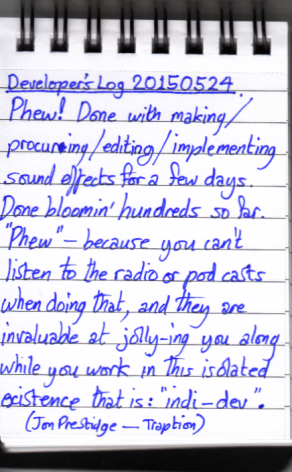 Developer's Log 20150524.
Phew! Done with making/
procuring/editing/implementing
sound effects for a few days.
Done bloomin' hundreds so far.
"Phew" – because you can't
listen to the radio or pod casts
when doing that, and they are
invaluable at jolly-ing you along
while you work in this isolated
existence that is: "indi-dev".
(Jon Prestidge — Traption)